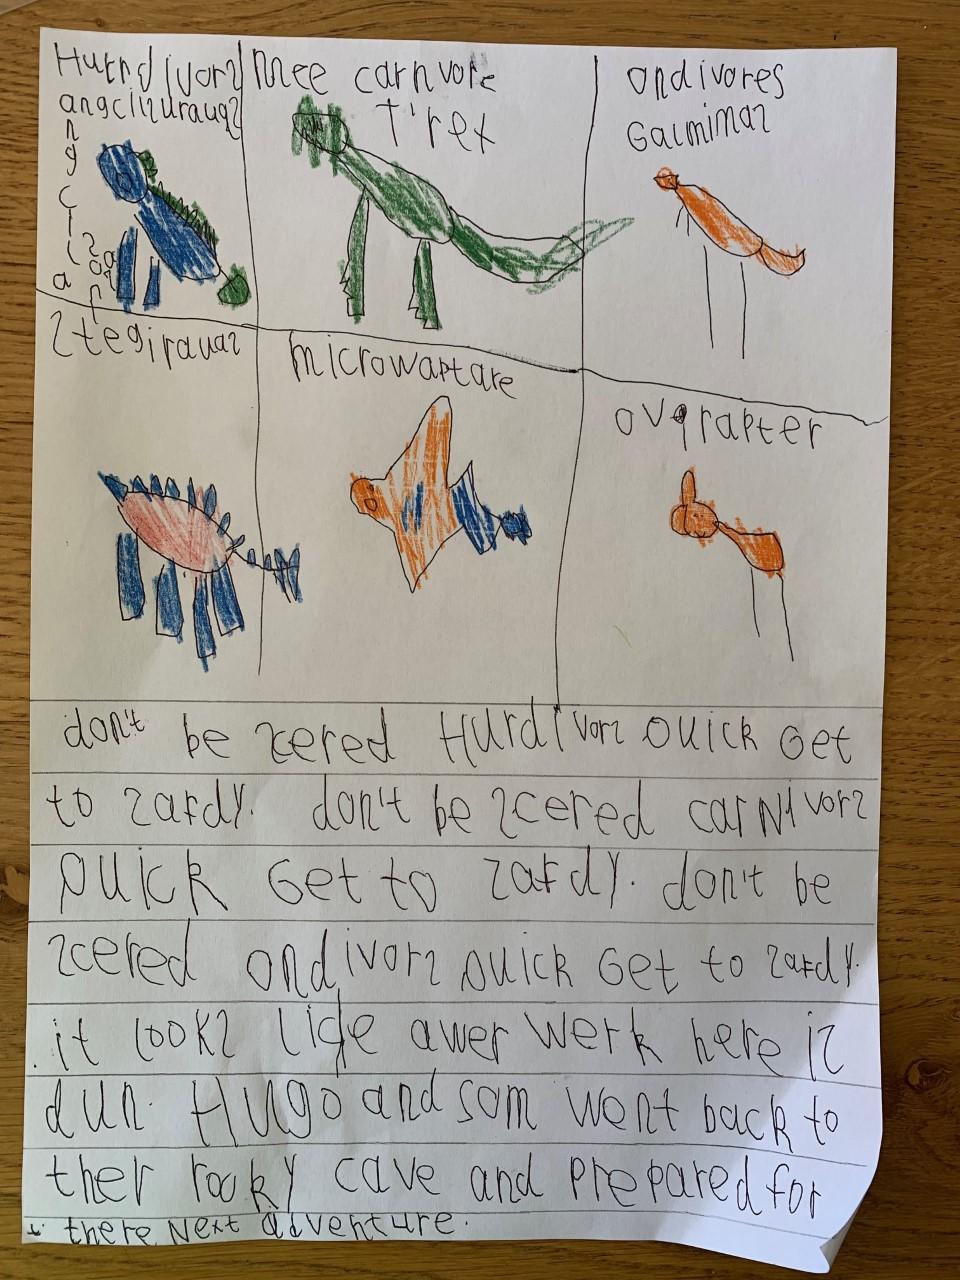 Hurrdivors
angcilzuraugs
Mee carnvore
t'rex
ondivores
Galmimas
Stegirauas
microwaptare
ovqrapter
don't be scered Hurdivors quick Get
to safdy. don't be scered carnivors
quick Get to safdy. don't be
scered ondivors quick Get to safdy.
it looks like awer werk here is
dun. Hugo and som went back to
ther rooky cave and prepared for
there Next adventure.